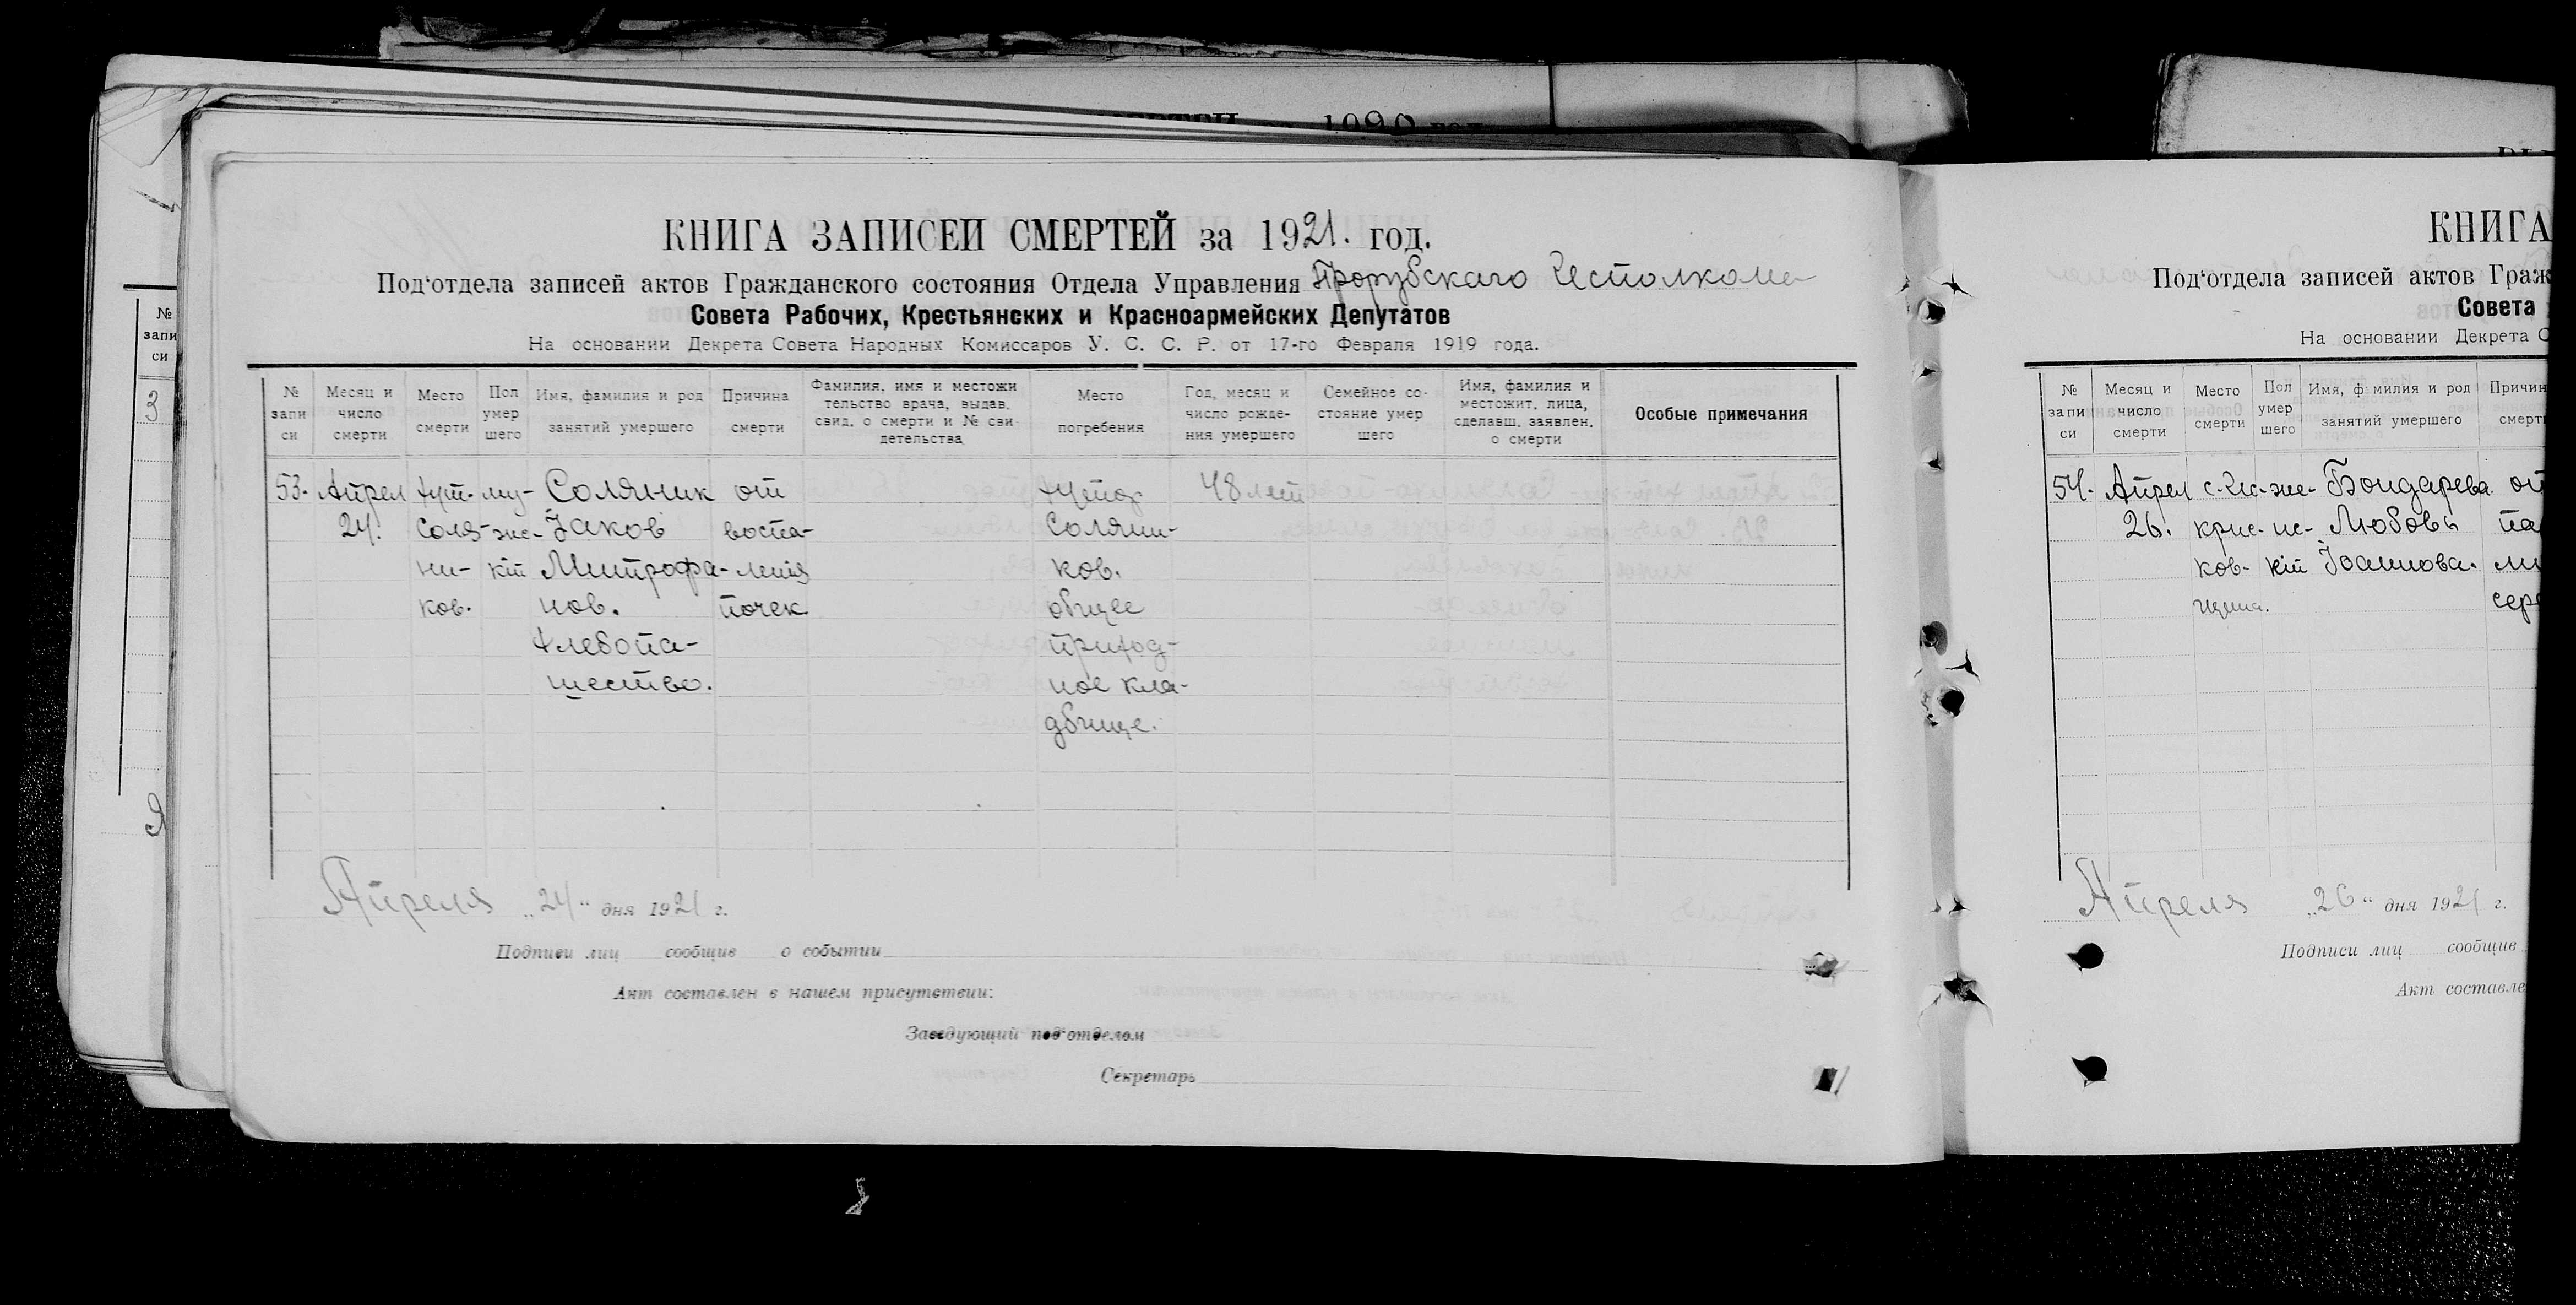 КНИГА ЗАПИСЕЙ СМЕРТЕЙ за 1921. год.
Под'отдела записей актов Гражданского состояния Отдела Управления Прорубскаго Исполкома
Совета Рабочих, Крестьянских и Красноармейских Депутатов
На основании Декрета Совета Народных Комиссаров У. С. С. Р. от 17-го Февраля 1919 года.
№ запи си
Месяц и число смерти
Место смерти
Пол умер шего
Имя, фамилия и род занятий умершего
Причина смерти
Фамилия, имя и местожи тельство врача, выдав. свид. о смерти и № сви детельства
Место погребения
Год, месяц и число рожде- ния умершего
Семейное со- стояние умер шего
Имя, фамилия и местожит. лица, сделавш. заявлен. о смерти
Особые примечания
53. Апрел хут. му- Соляник от хутор 48 лет
24. Соля- же- Іаков воспа- Соляни-
ни- кій Митрофа- ленія ков.
ков. нов. почек общее
Хлебопа- приход-
шество. ное кла-
дбище.
Апреля „24" дня 1921 г.
Подписи лиц сообщив о событии
Акт составлен в нашем присутствии:
Заведующий под'отделом
Секретарь
КНИГА
Под'отдела записей актов Граж
Совета
На основании Декрета С
№ запи си
Месяц и число смерти
Место смерти
Пол умер шего
Имя, фамилия и род занятий умершего
Причин смерт
54. Апрел с. Ис- же- Бондарева от
26. крис- нс- Любовь па
ков- кій Іоаннова.
щина. сер
Апреля „26" дня 1921 г.
Подписи лиц сообщив
Акт составле
№ запи си
3